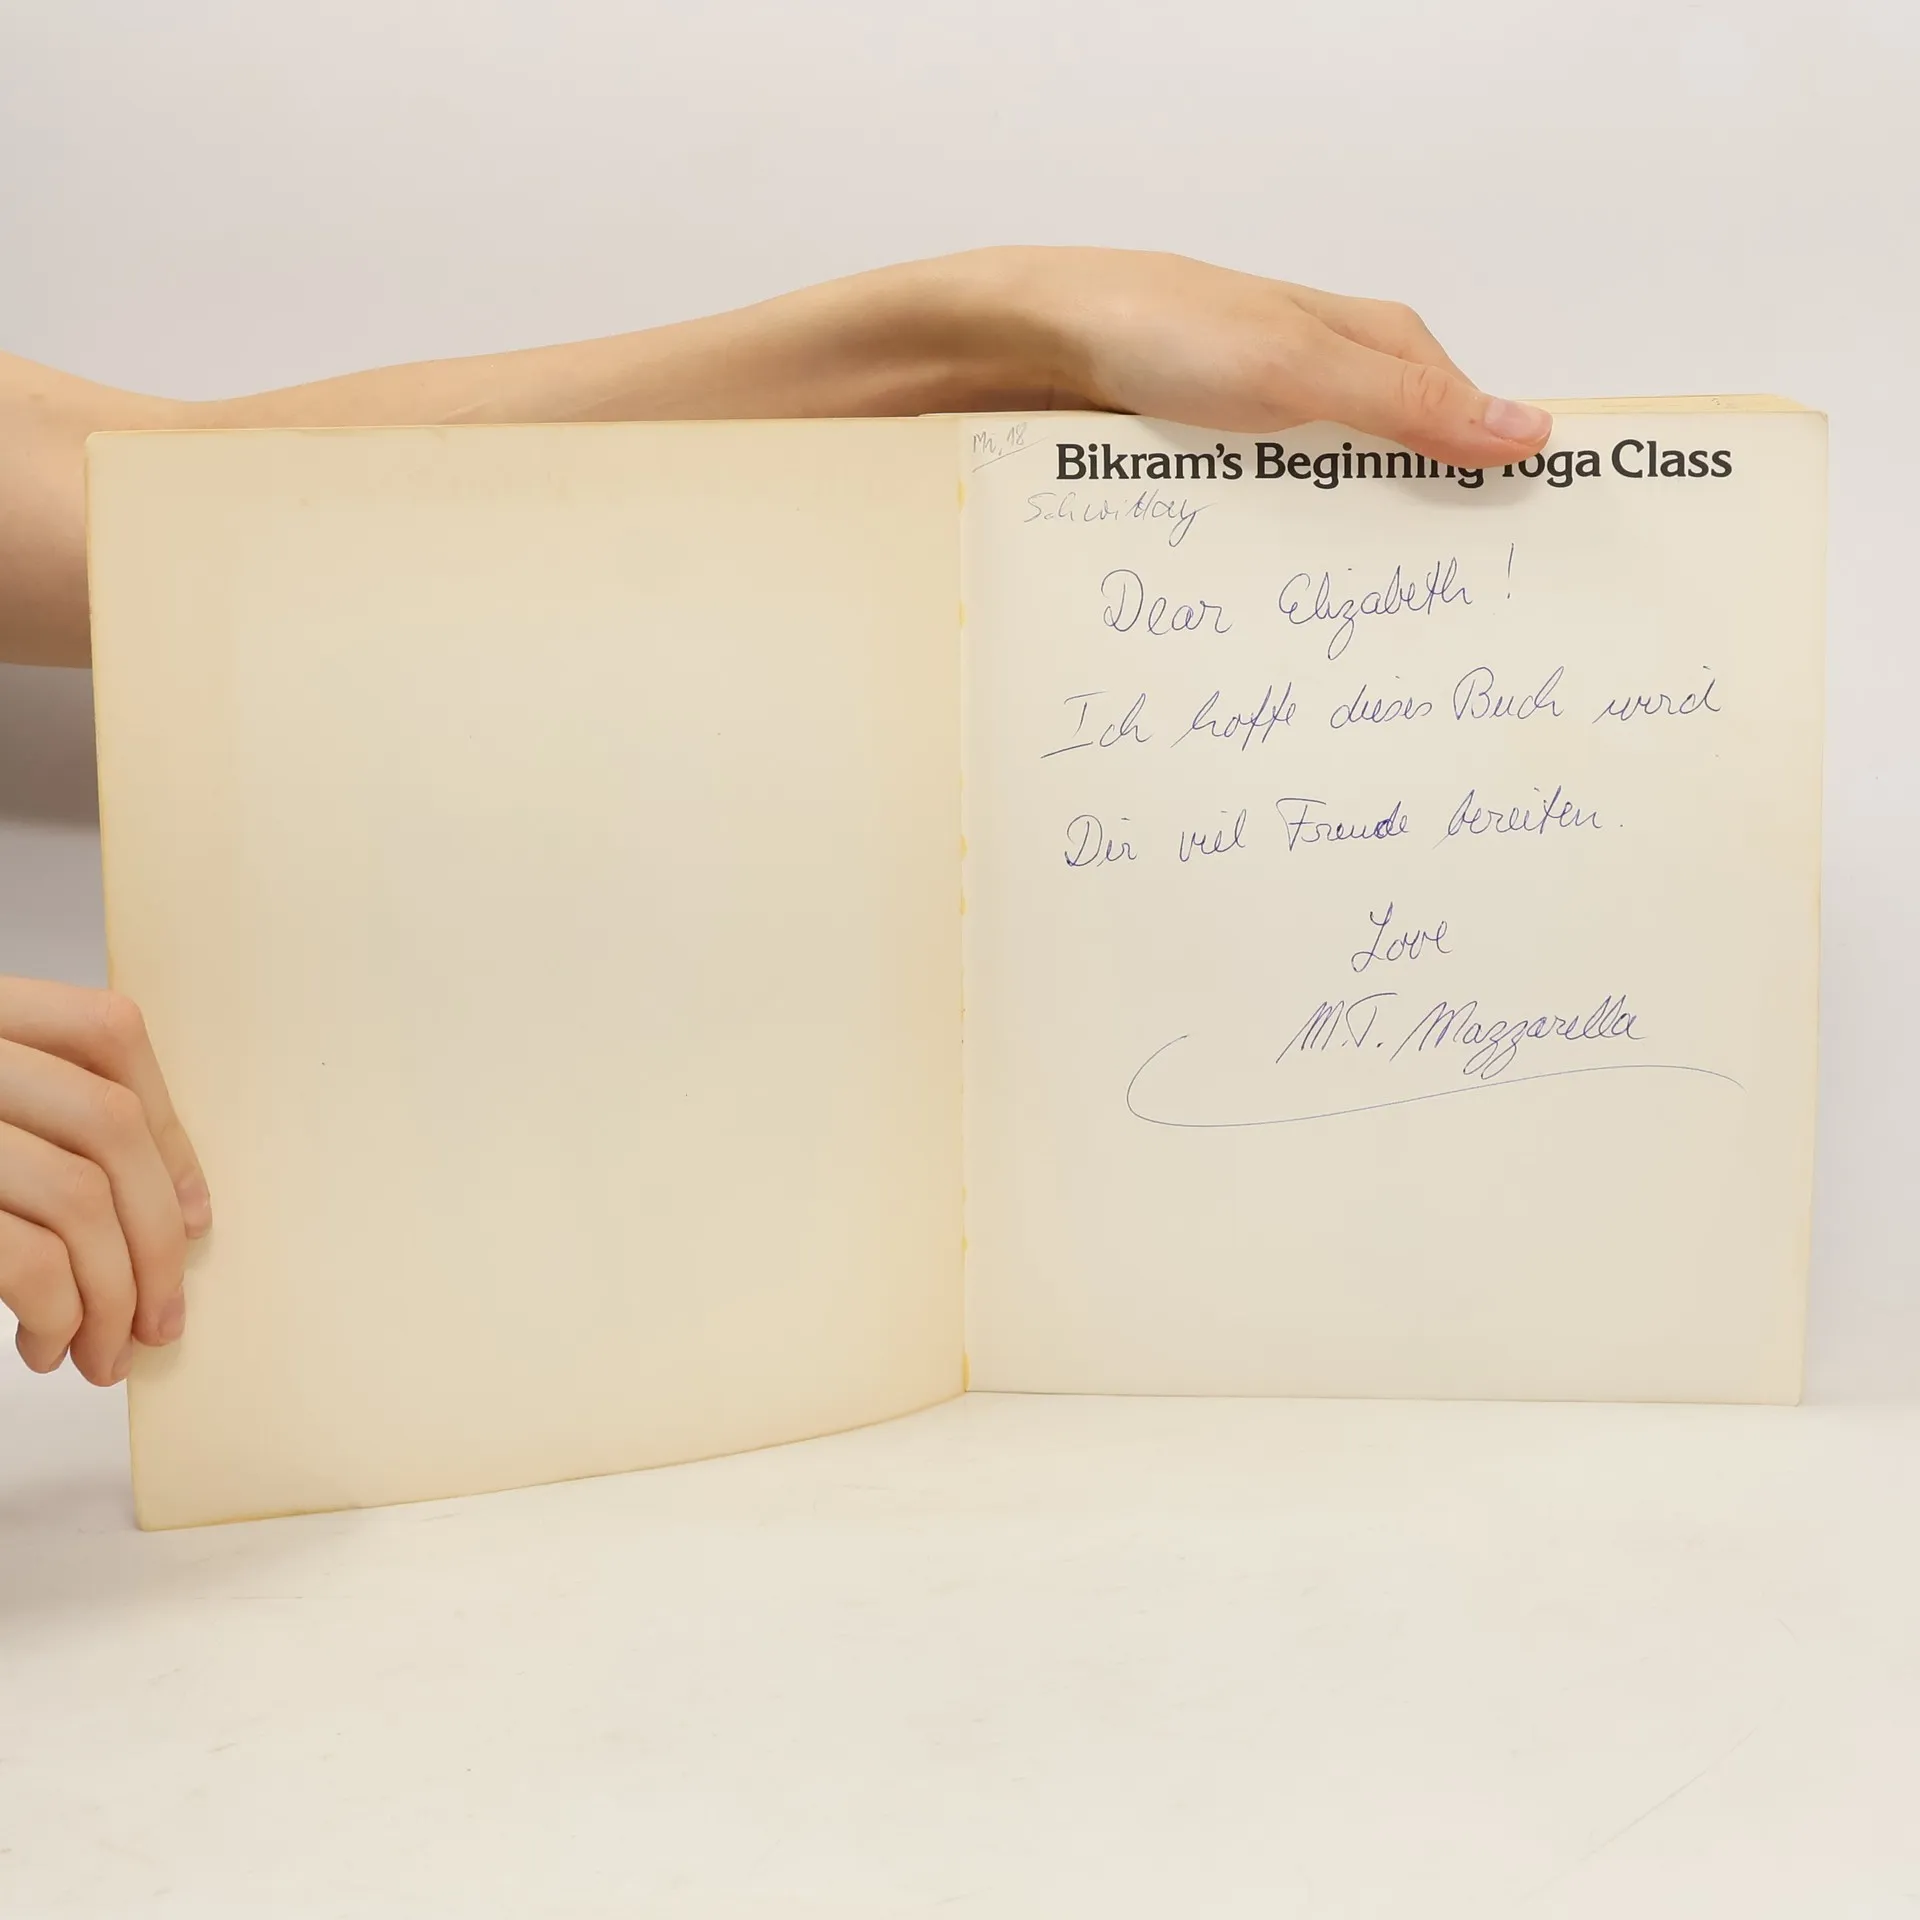 Mi, 18
Bikram's Beginning Yoga Class
Dear Elizabeth!
Ich hoffe dieses Buch wird
Dir viel Freude bereiten.
Love
M.T. Mazzarella